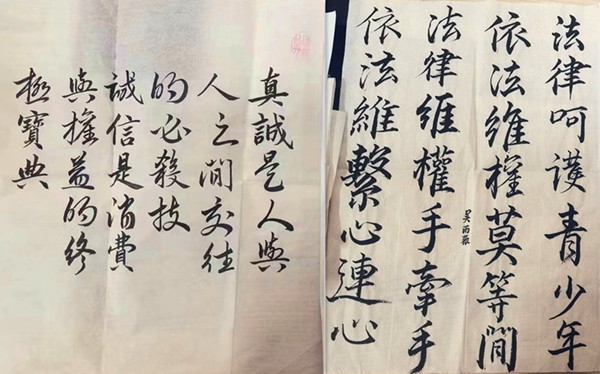 真誠是人與
人之間交往
的必殺技
誠信是消費
與權益的終
極寶典
法律呵護青少年
依法維權莫等間
法律維權手牽手
依法維繫心連心